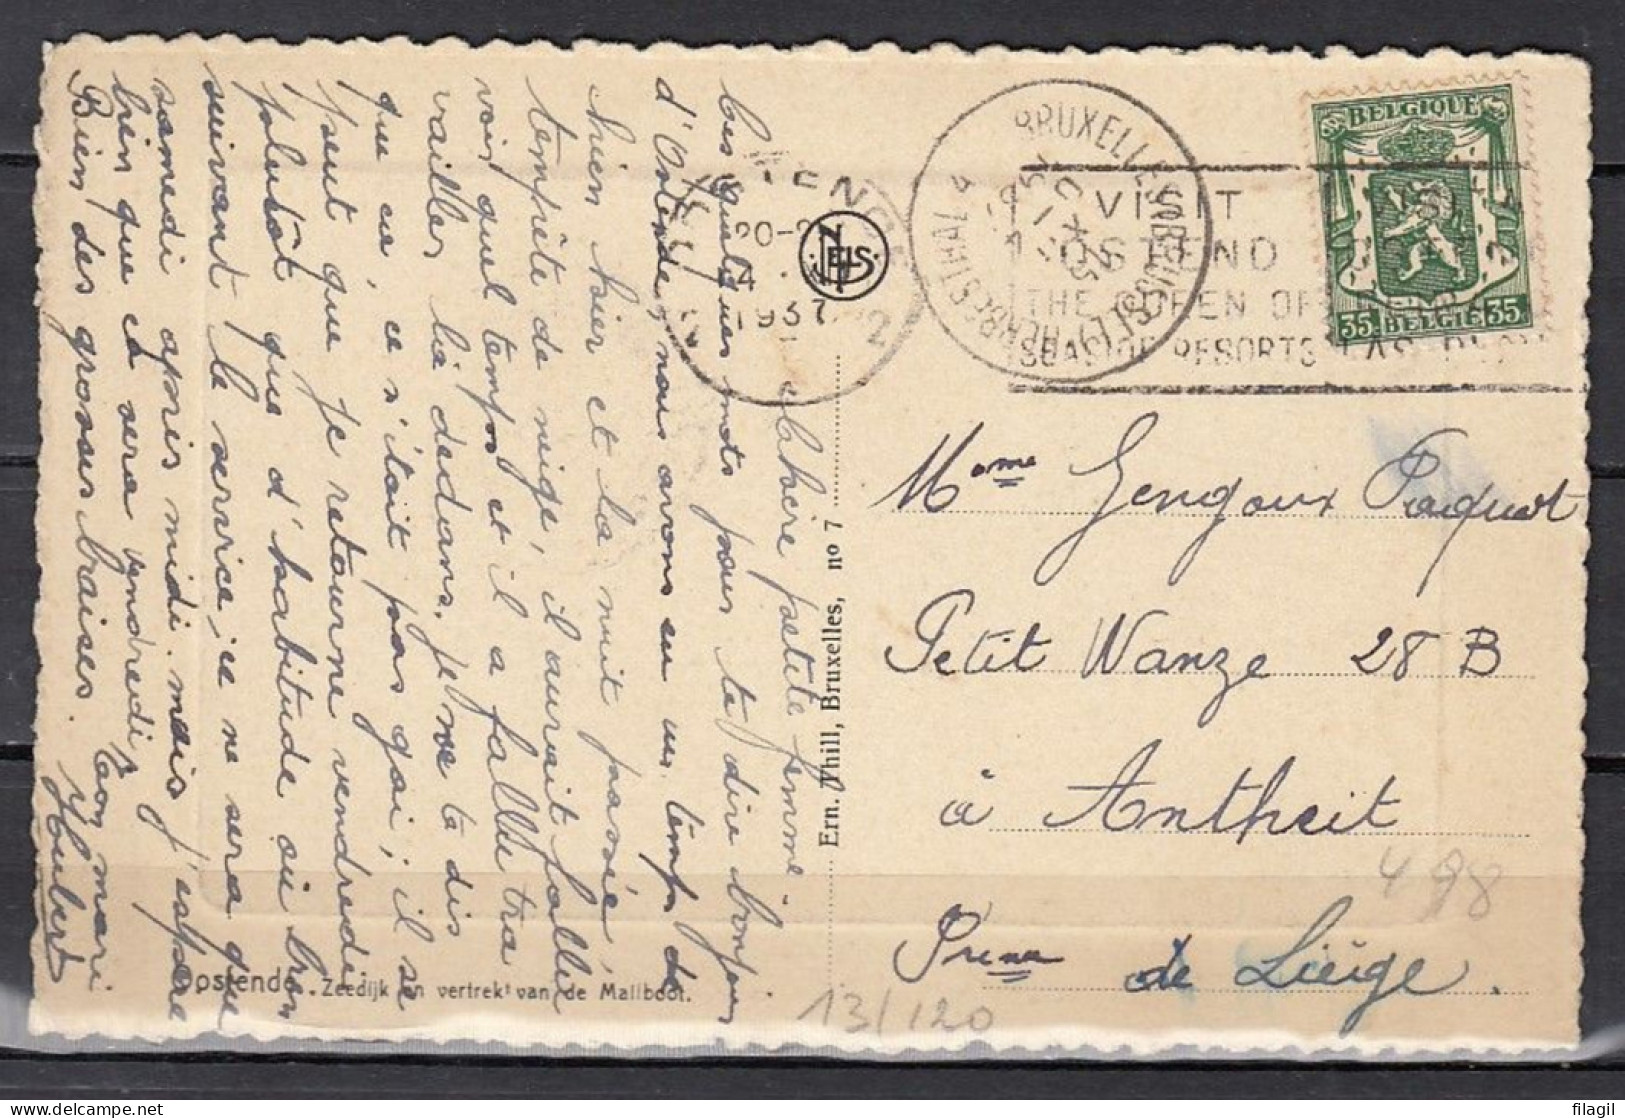 Chère petite femme
Ces quelques mots pour te dire bonjour
d'Ostende, nous avons eu un temps de
chien hier et la nuit passée,
tempête de neige, il aurait fallu
voir quel temps et il a fallu tra
vailler là dedans. Je ne te dis
que ça, ce n'était pas gai; il se
peut que je retourne vendredi
plutôt que d'habitude ou bien
suivant le service; ce ne sera que
samedi après midi. mais j'espère
bien que ce sera vendredi.
Bien des grosses baises. Ton mari.
Hubert
Oostende. Zeedijk en vertrek van de Mailboot.
Ern. Thill, Bruxelles, no 7
NELS
20-2
4
1937
2
BRUXELLES
BRUSSEL
HERBESTHAL 4
VISIT
OSTEND
THE QUEEN OF
SEASIDE RESORTS
BELGIQUE
35 BELGIE 35
Mme Gengoux Paquot
Petit Wanze 28 B
à Antheit
Prince de Liège.
498
13/120
filagil